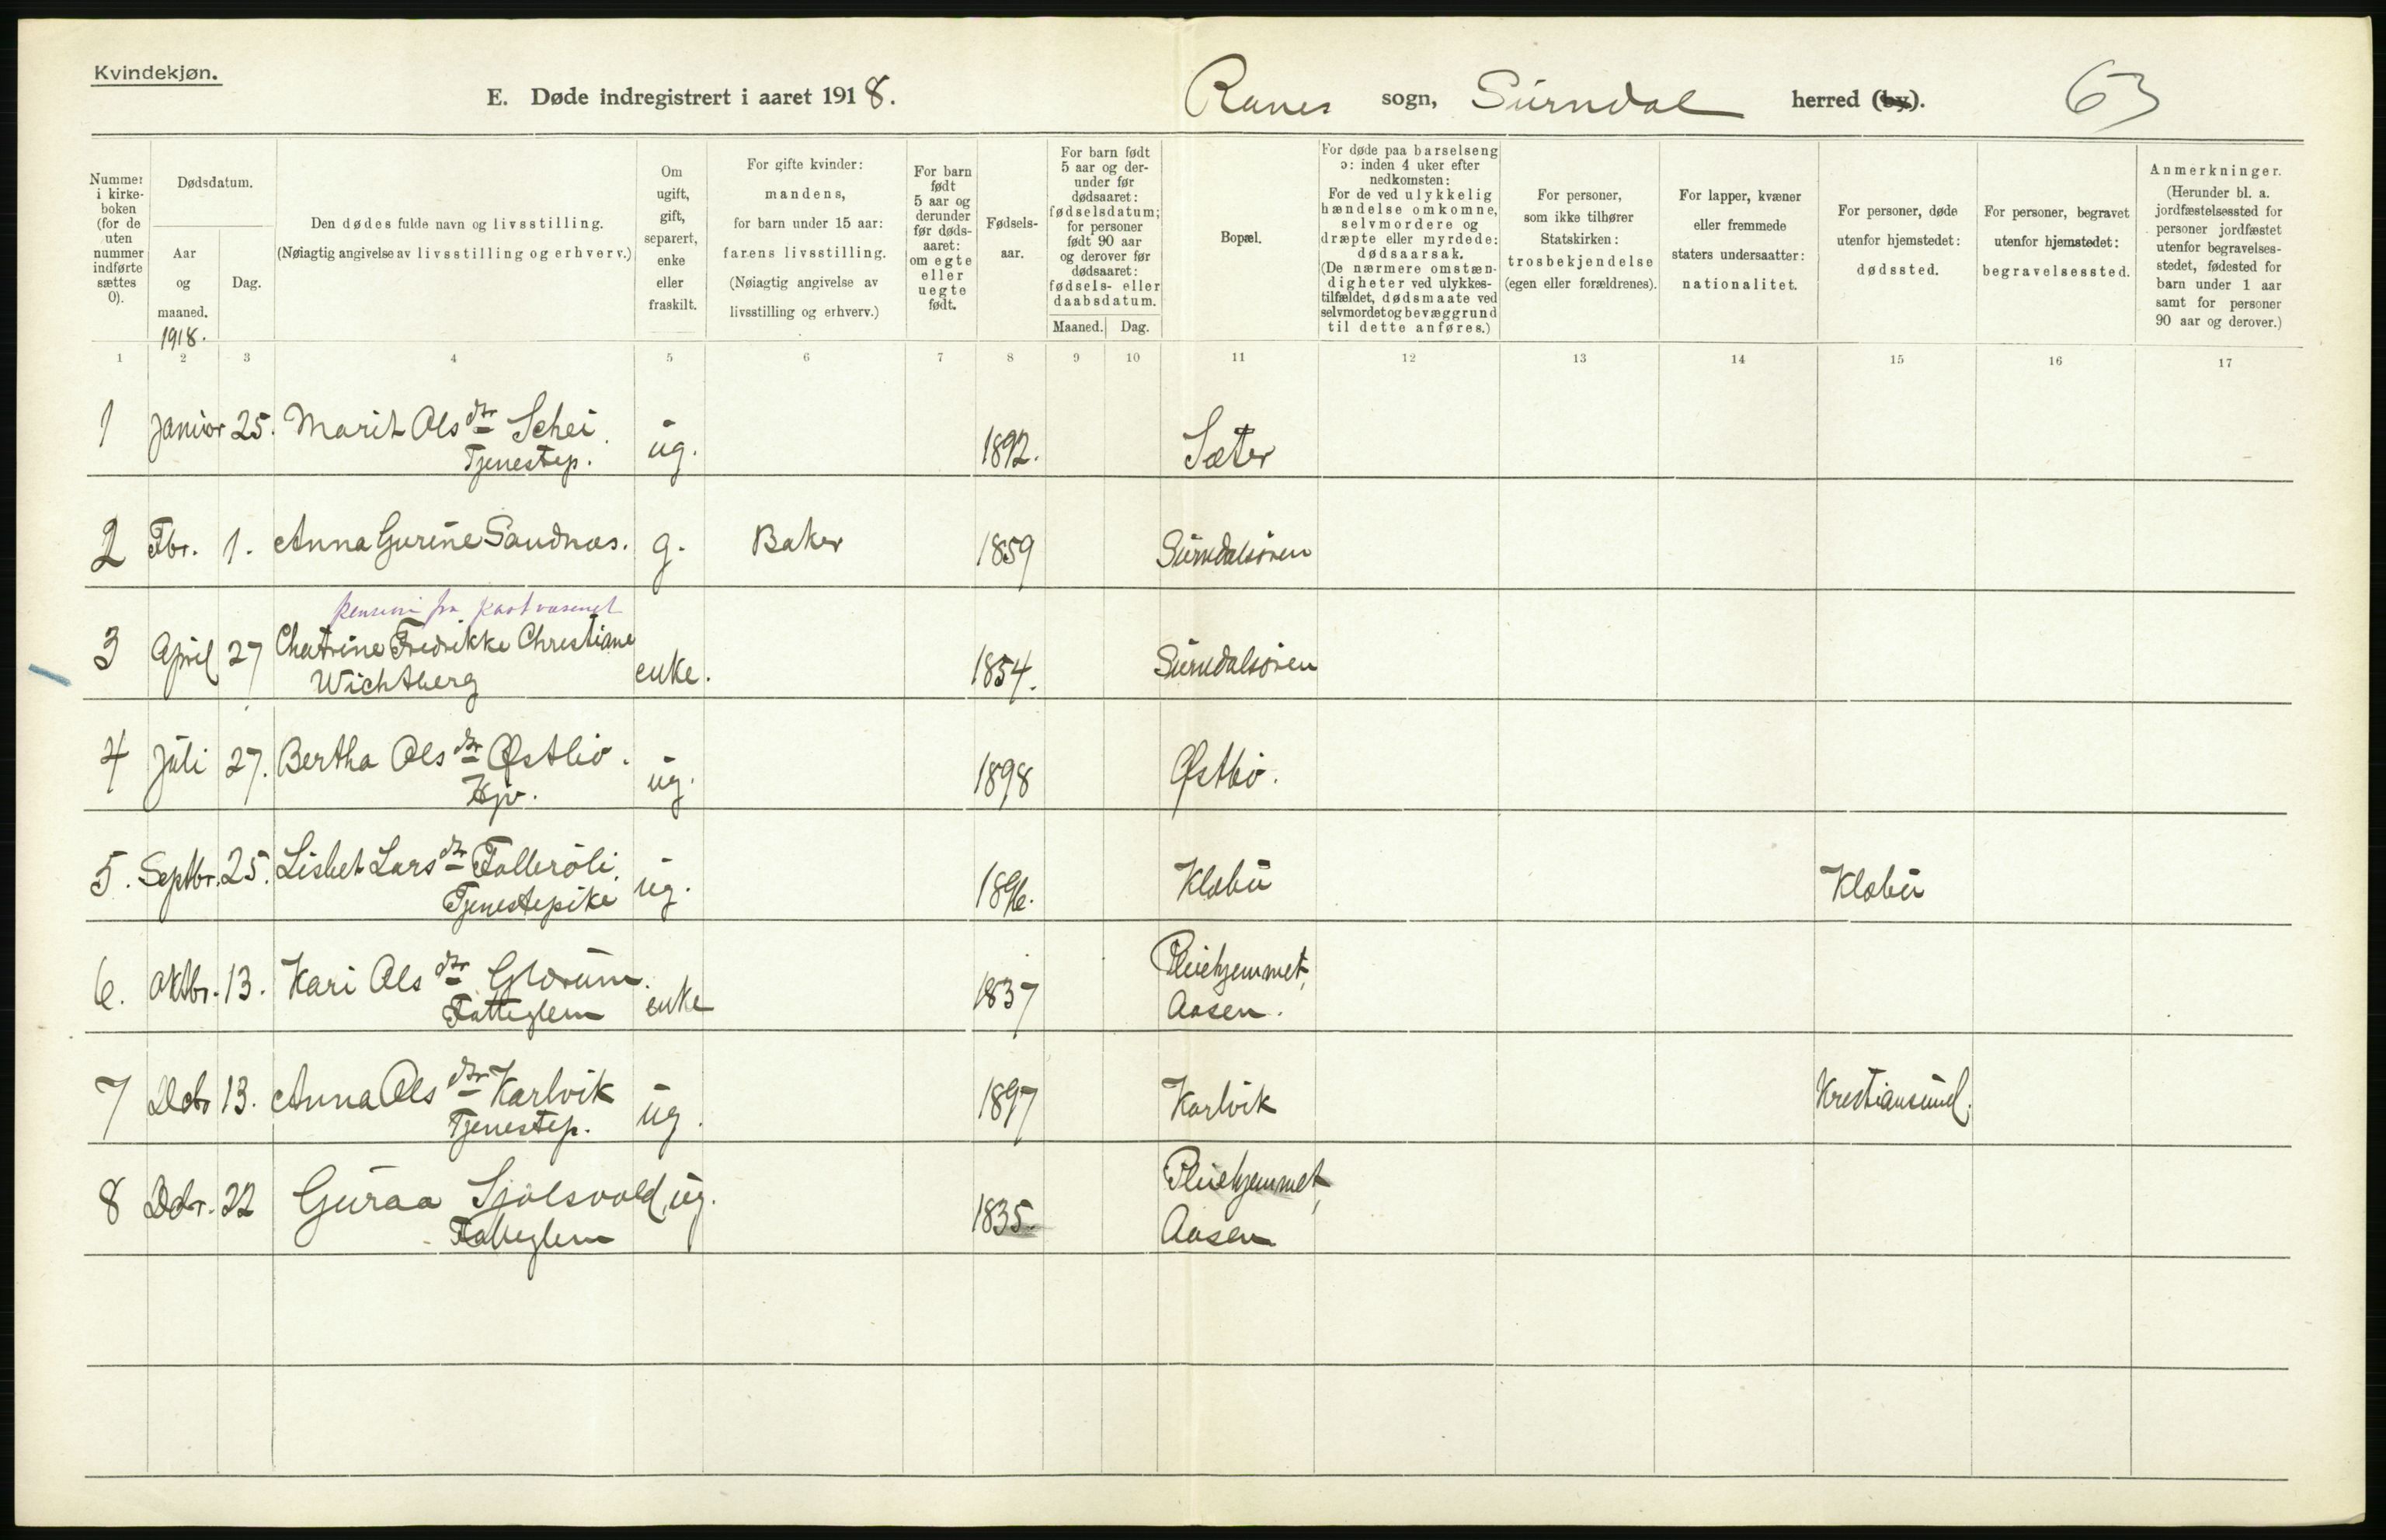 Kvindekjøn.
E. Døde indregistrert i aaret 1918. Ranes sogn, Surndal herred (by). 63
Nummer i kirkeboken (for de uten nummer indførte sættes 0).
Dødsdatum.
Aar og maaned.
1918.
Dag.
Den dødes fulde navn og livsstilling.
(Nøiagtig angivelse av livsstilling og erhverv.)
Om ugift, gift, separert, enke eller fraskilt.
For gifte kvinder:
mandens,
for barn under 15 aar:
farens livsstilling.
(Nøiagtig angivelse av
livsstilling og erhverv.)
For barn født 5 aar og derunder før dødsaaret: om egte eller uegte født.
Fødselsaar.
For barn født 5 aar og derunder før dødsaaret: fødselsdatum; for personer født 90 aar og derover før dødsaaret: fødsels- eller daabsdatum.
Maaned. Dag.
Bopæl.
For døde paa barselseng ɔ: inden 4 uker efter nedkomsten: For de ved ulykkelig hændelse omkomne, selvmordere og dræpte eller myrdede: dødsaarsak. (De nærmere omstændigheter ved ulykkestilfældet, dødsmaate ved selvmordet og bevæggrund til dette anføres.)
For personer, som ikke tilhører Statskirken: trosbekjendelse (egen eller forældrenes).
For lapper, kvæner eller fremmede staters undersaatter: nationalitet.
For personer, døde utenfor hjemstedet: dødssted.
For personer, begravet utenfor hjemstedet: begravelsessted.
Anmerkninger.
(Herunder bl. a. jordfæstelsessted for personer jordfæstet utenfor begravelsesstedet, fødested for barn under 1 aar samt for personer 90 aar og derover.)
1 2 3 4 5 6 7 8 9 10 11 12 13 14 15 16 17
1 Januar 25. Marit Olsdtr Schei. ug. 1892. Sæter
Tjenestep.
2 Fbr. 1. Anna Gurine Sandnæs. g. Baker 1859 Surndalsøren
pension fra postvæsenet
3 April 27 Chatrine Fredrikke Christiane
Wichtberg enke. 1854. Surndalsøren
4 Juli 27. Bertha Olsdtr Østbø. ug. 1898 Østbø.
5. Septbr. 25. Lisbet Larsdtr ug. 1896. Klæbu Klæbu
Tjenestepike
6. Oktbr. 13. Kari Olsdtr Glærum. enke 1837 Pleiehjemmet,
Fatteglem Aasen.
7 Dcbr 13. Anna Olsdtr Karlvik ug. 1897 Karlvik Kristiansund.
Tjenestep.
8 Dcbr. 22 Guraa Sjølsvold, ug. 1835. Pleiehjemmet,
Fatteglem Aasen